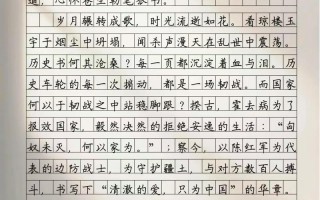 岁月辗转成歌，时光流逝如花。看琼楼玉
宇于烟尘中坍塌，闻杀声漫天在乱世中震荡。
历史书何其沧桑？每一页都沉淀着血与泪。历
史车轮的每一次拂动，都是一场韧战。而国家
何以于韧战之中站稳脚跟？揆古，霍去病为了
报效国家，毅然决然的拒绝安逸的生活：“匈
奴未灭，何以家为。”；察今，以陈红军为代
表的边防战士，为守护疆土，与对方数百人搏
斗，书写下“清澈的爱，只为中国”的华章。